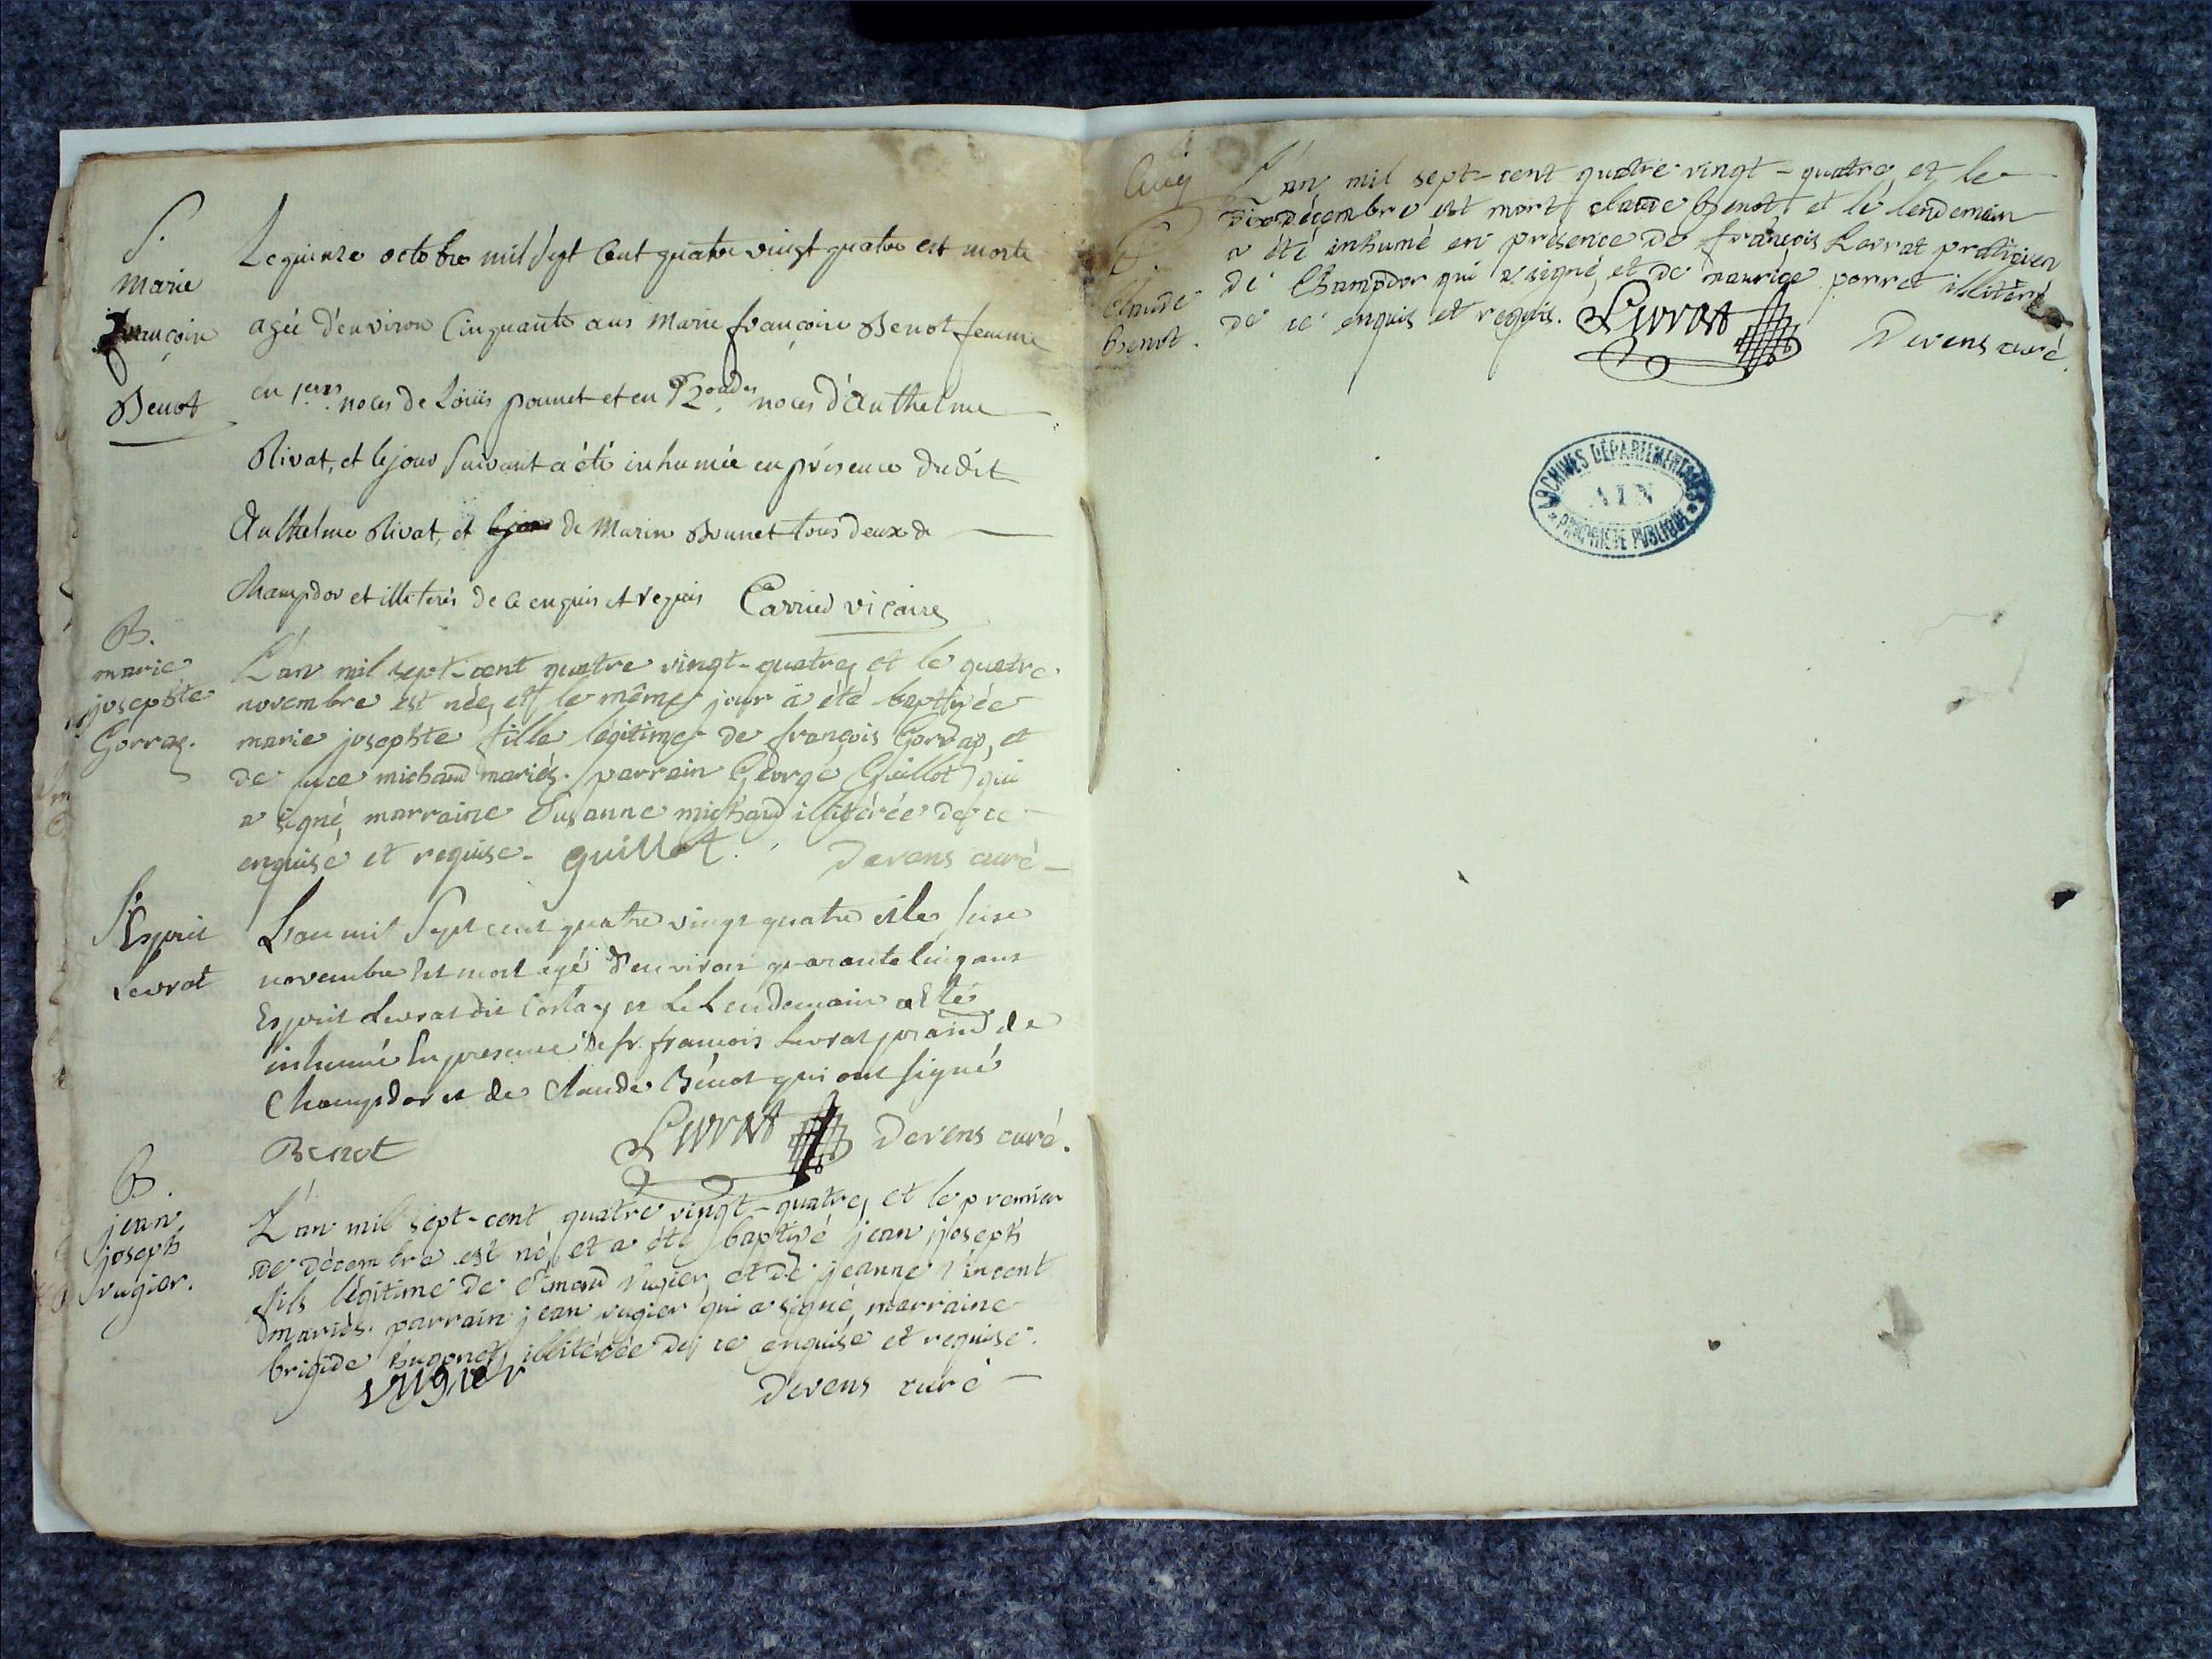 S.
Marie
françoise
Benot
Le quinze octobre mil sept cent quatre vingt quatre est morte
agée d'environ Cinquante ans Marie françoise Benot femme
en 1eres noces de Loüis ponnet et en 2ondes noces d'Anthelme
Rivat, et le jour Suivant a été inhumée en présence dudit
Anthelme Rivat, et le jour de Marin Bonnet tous deux de
Champdor et illiterés de ce enquis et requis Carried vicaire
B.
marie
josephte
Gorraz.
L'an mil sept-cent quatre vingt-quatre, et le quatre
novembre est née, et le même jour a été baptisée
marie josephte fille légitime de françois Gorraz, et
de luce michaud mariés. parrain George Guillot qui
a signé, marraine Susanne michaud illitérée de ce
enquise et requise. guillot. Devens curé
S.
Esprit
Levrat
L'an mil Sept cent quatre vingt quatre et le seise
novembre Est mort agé d'environ quarante cinq ans
Esprit Levrat dit Corlay et Le Lendemain a Eté
inhumé En presence de sr. françois Levrat de
Champdor et de Claude Bénot qui ont signé
Benot Livrat Devens curé.
B.
jean
joseph
vugier.
L'an mil sept-cent quatre vingt-quatre, et le premier
de décembre est né, et a été baptisé jean joseph
fils légitime de Vugier, et de jeanne Vincent
mariés. parrain jean vugier qui a signé, marraine
brigide hugonet, illitérée de ce enquise et requise.
vugier Devens curé
S.
Claude
Benot.
L'an mil sept-cent quatre vingt-quatre, et le
dix décembre est mort claude Benot, et le lendemain
a été inhumé en présence de françois Levrat praticien
de Champdor qui a signé, et de maurice perret illitéré
de ce enquis et requis. Livrat Devens curé.
ARCHIVES DÉPARTEMENTALES
AIN
PROPRIÉTÉ PUBLIQUE